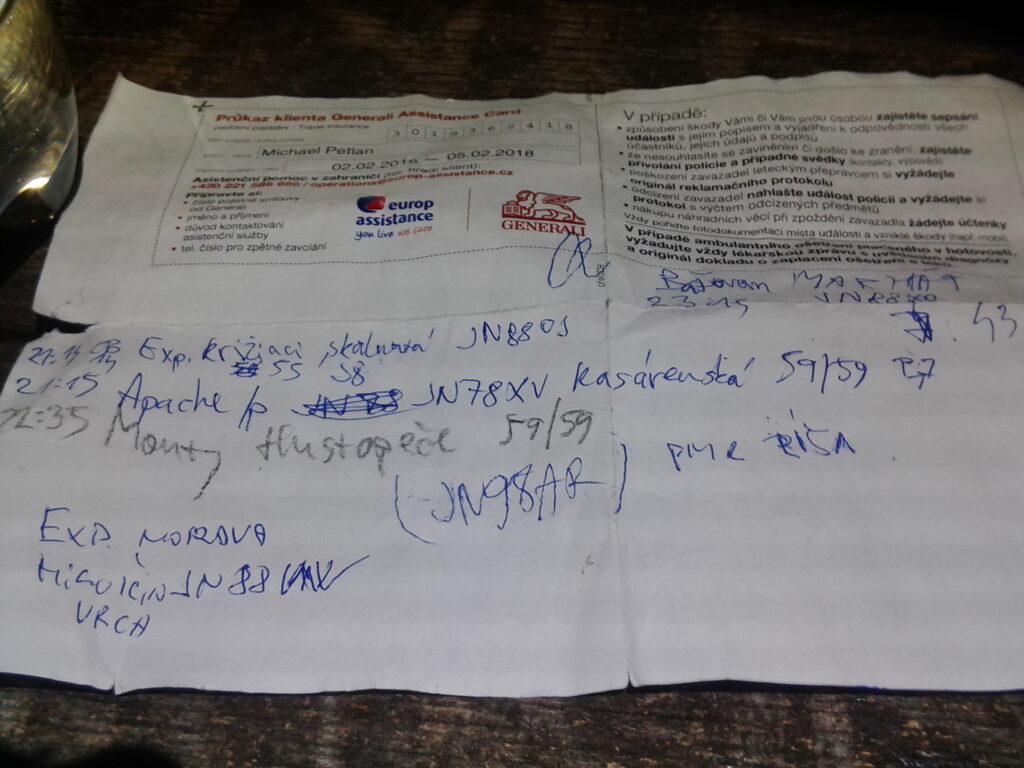 Průkaz klienta Generali Assistance Card
cestovní pojištění - Travel Insurance
3019362418
Michael Petlan
02.02.2018 — 05.02.2018
Asistenční pomoc v zahraničí (tel. hradí klient):
+420 221 586 665 / operations@europ-assistance.cz
Připravte si:
• číslo pojistné smlouvy
od Generali
• jméno a příjmení
• důvod kontaktování
asistenční služby
• tel. číslo pro zpětné zavolání
europ
assistance
you live we care
GENERALI
V případě:
• způsobení škody Vámi či Vám jinou osobou zajistěte sepsání
události s jejím popisem a vyjádření k odpovědnosti všech
účastníků, jejich údajů a podpisů
• že nesouhlasíte se zaviněním či došlo ke zranění, zajistěte
přivolání policie a případné svědky (kontakty, výpovědi)
• poškození zavazadel leteckým přepravcem si vyžádejte
originál reklamačního protokolu
• odcizení zavazadel nahlašte událost policii a vyžádejte si
protokol s výčtem odcizených předmětů
• nákupu náhradních věcí při zpoždění zavazadla žádejte účtenky
Vždy pořiďte fotodokumentaci místa události a vzniklé škody (např. mobil)
V případě ambulantního ošetření placeného v hotovosti,
vyžadujte vždy lékařskou zprávu s uvedením diagnózy
a originál dokladu o zaplacení ošetření
23:15
43
Exp. Križiaci skalnatá JN88OJ
55 58
21:15 Apache /p JN78XV Kasárenská 59/59
22:35 Monty Hustopeče 59/59
(JN98AR) PMR
EXP. MORAVA
JN88
VRCH